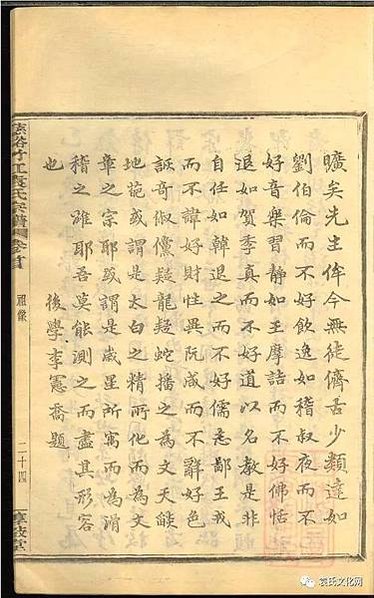 曠矣先生侔今無徒儕古少類達如
劉伯倫而不好飲逸如稽叔夜而不
好音樂習靜如王摩詰而不好佛恬
退如賀季真而不好道以名教是非
自任如韓退之而不好儒志鄙王戎
而不諱好財性異阮咸而不辭好色
詼奇俶儻疑龍疑蛇播之為文天燄
地葩或謂是太白之精所化而為文
章之宗耶或謂是歲星所寓而為滑
稽之雄耶吾莫能測之而盡其形容
也
後學李憲喬題
竹江袁氏宗譜 卷首
祖像
二十四
袁氏文化网